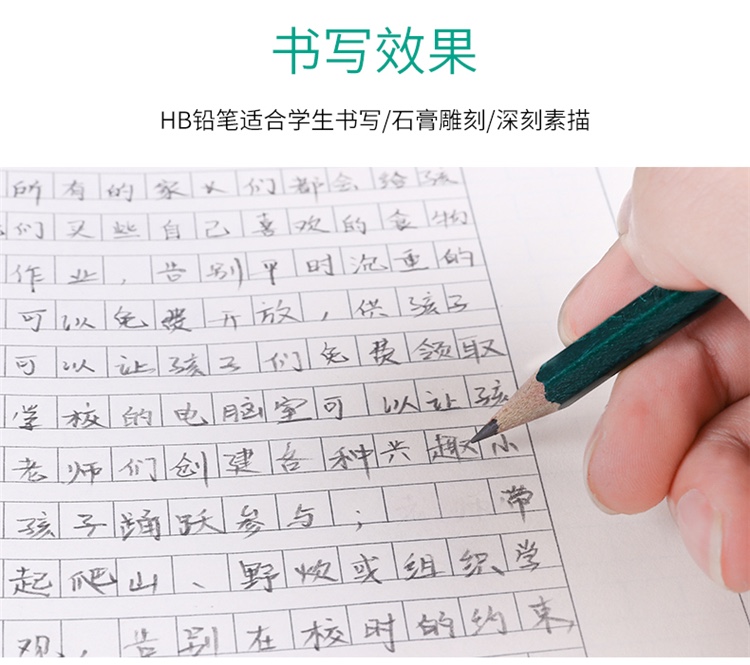 书写效果
HB铅笔适合学生书写/石膏雕刻/深刻素描
所有的家长们都会给孩
们买些自己喜欢的食物
作业，告别平时沉重的
可以免费开放，供孩子
可以让孩子们免费领取
学校的电脑室可以让孩
老师们创建各种兴趣小
孩子踊跃参与；带
起爬山、野炊或组织学
观，告别在校时的约束，